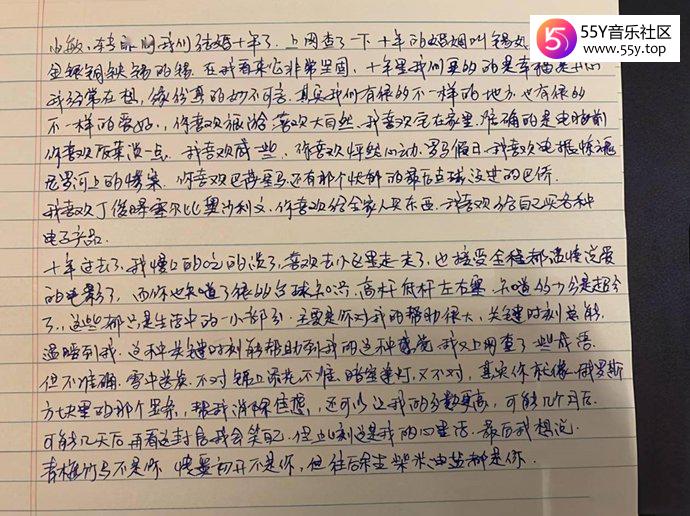 55Y音乐社区
www.55y.top
小敏，我们结婚十年了．上网查了一下十年的婚姻叫锡
金银铜铁锡的锡．在我看来它非常坚固，十年里我们真的的是幸福是
我经常在想，缘份真的妙不可言．其实我们有很的不一样的地方，也有很的
不一样的爱好．，你喜欢旅游喜欢大自然．我喜欢宅在家里．准确的是电脑前
你喜欢饭菜淡一点．我喜欢咸一些，你喜欢怦然心动．罗马假日．我喜欢电锯惊魂
尼罗河上的惨案．你喜欢巴萨皇马还有那个快的最后点球没进的巴乔
我喜欢丁俊晖塞尔比奥沙利文．你喜欢给全家人买东西．我喜欢给自己买各种
电子产品．
十年过去了．我慢慢的吃的淡了，喜欢去小区里走走了，也接受全程都谈情说爱
的电影了，而你也知道了很的台球知识．高杆低杆左右塞．知道的
了，这些都只是生活中的一小部分．主要是你对我的帮助很大，关键时刻总能
温暖到我．这种关键时刻能帮助到我的这种感觉我又上网查了一些成语．
但不准确．雪中送炭．不对锦上添花不准．暗室逢灯，又不对，其实你就像俄罗斯
方块里的那个，帮我消除，还可以让我的分数更高，可能几个月后．
可能几天后再看这封信我会笑自己．但此刻这是我的心里话．最后我想说．
青梅竹马不是你 情窦初开不是你，但往后余生柴米油盐都是你．